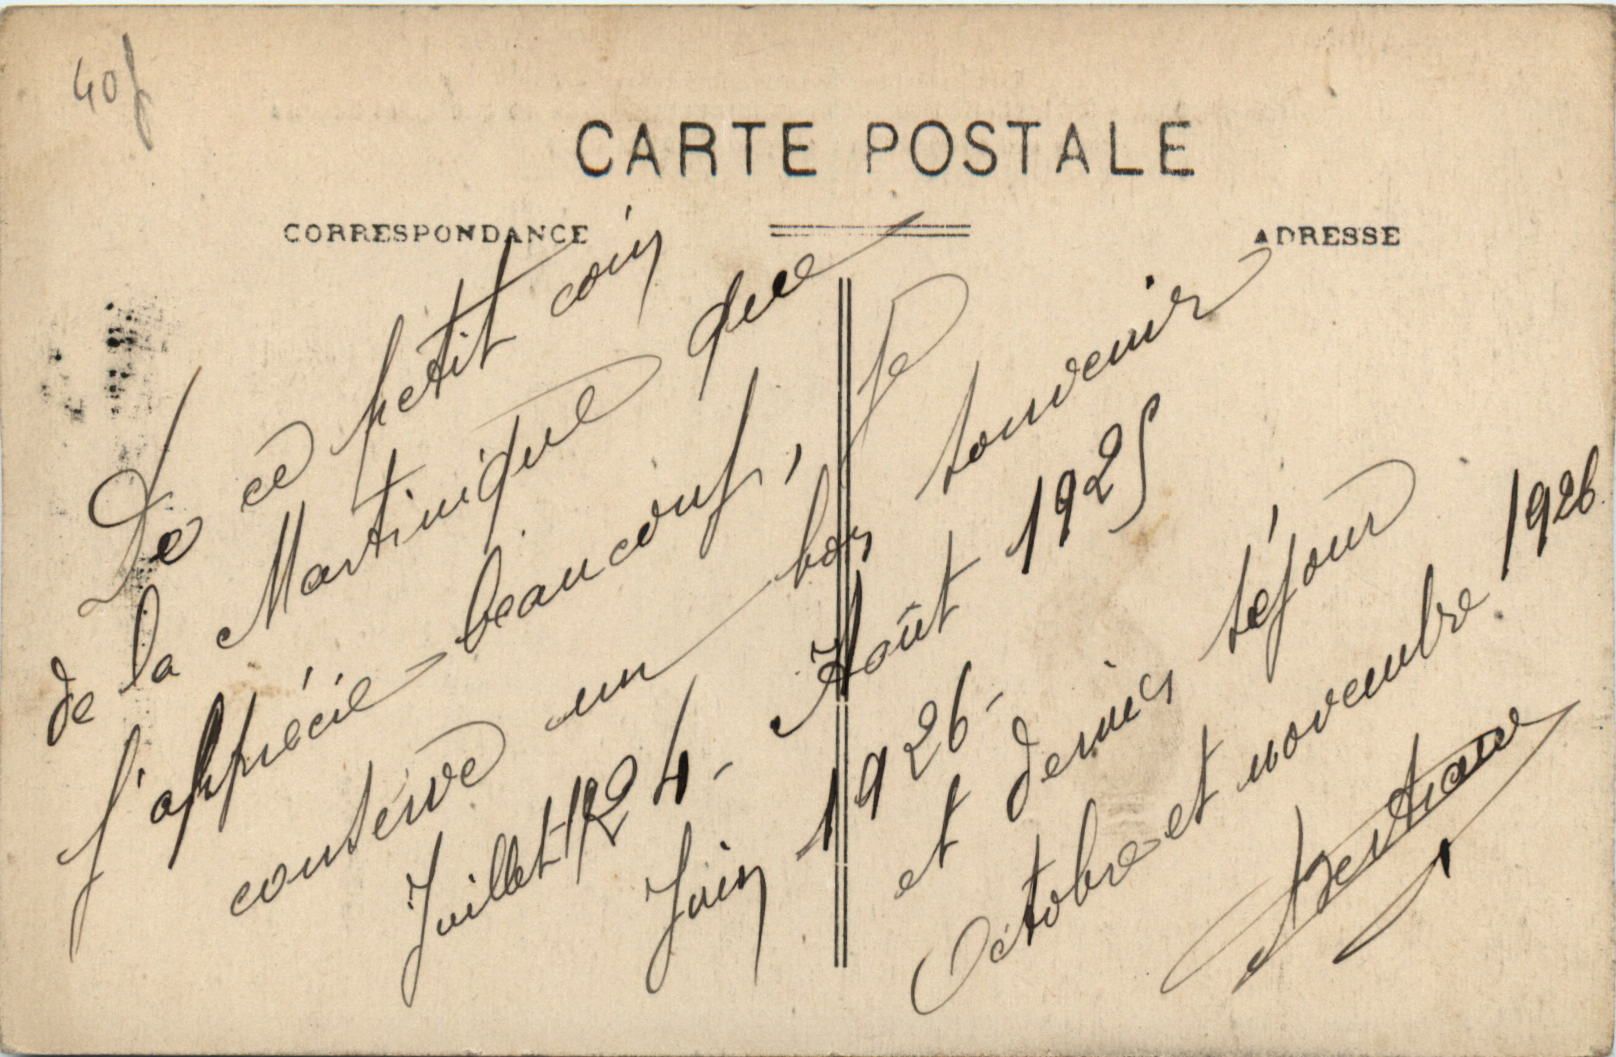 40f
CARTE POSTALE
CORRESPONDANCE
ADRESSE
De ce petit coin
de la Martinique que
j'apprécie beaucoup, je
conserve un bon souvenir
Juillet 1924 - Août 1925
Juin 1926 -
et dernier séjour
Octobre et novembre 1926